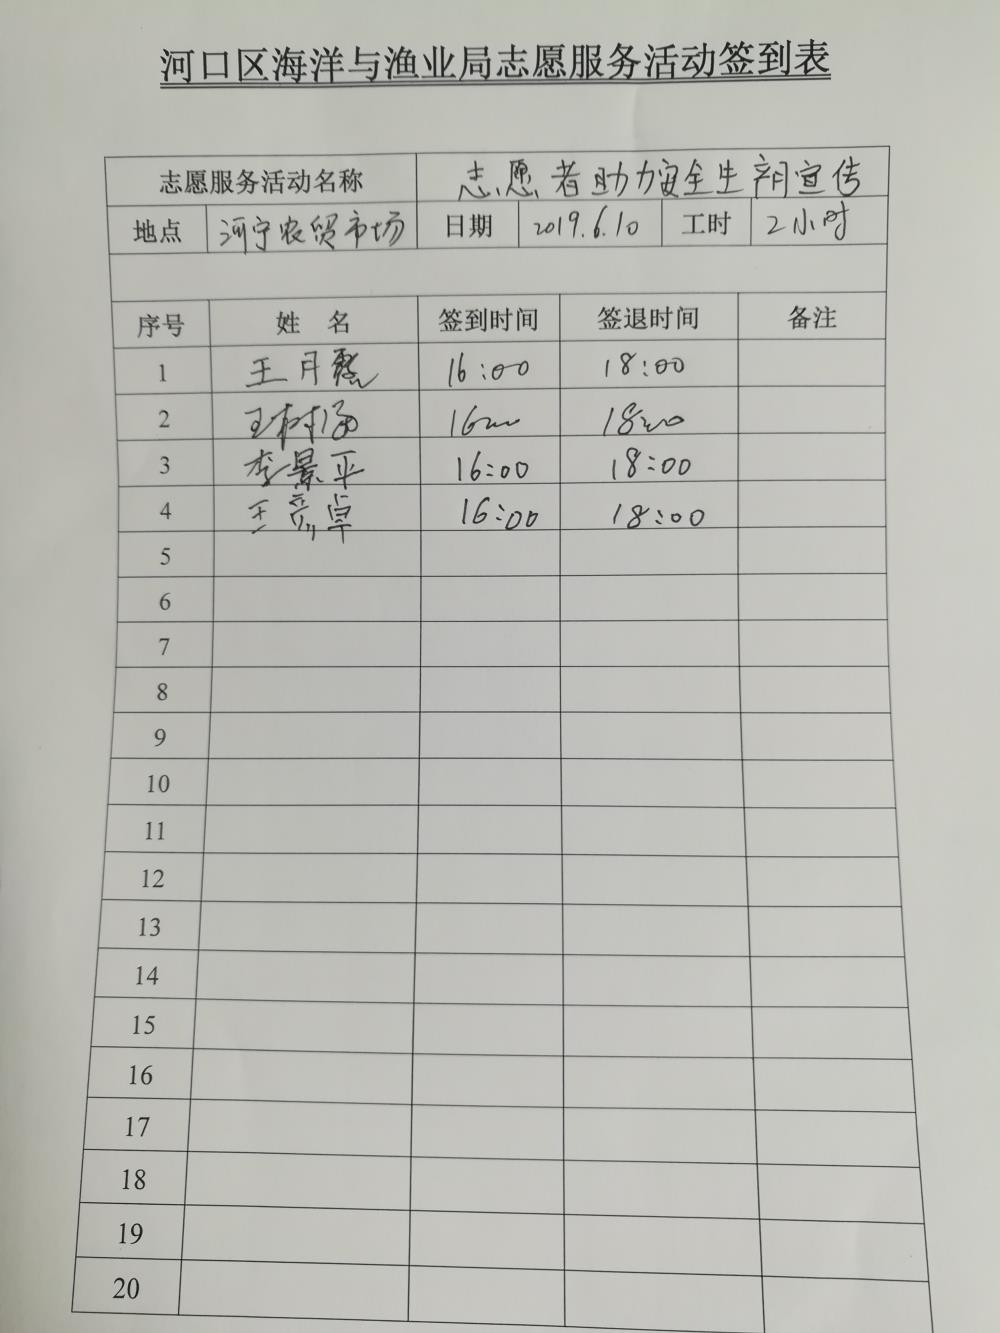 河口区海洋与渔业局志愿服务活动签到表
志愿服务活动名称 志愿者助力安全生产月宣传
地点 河宁农贸市场 日期 2019.6.10 工时 2小时
序号 姓 名 签到时间 签退时间 备注
1 王月慧 16:00 18:00
2 王树涵 16:00 18:00
3 李景平 16:00 18:00
4 王彦卓 16:00 18:00
5
6
7
8
9
10
11
12
13
14
15
16
17
18
19
20